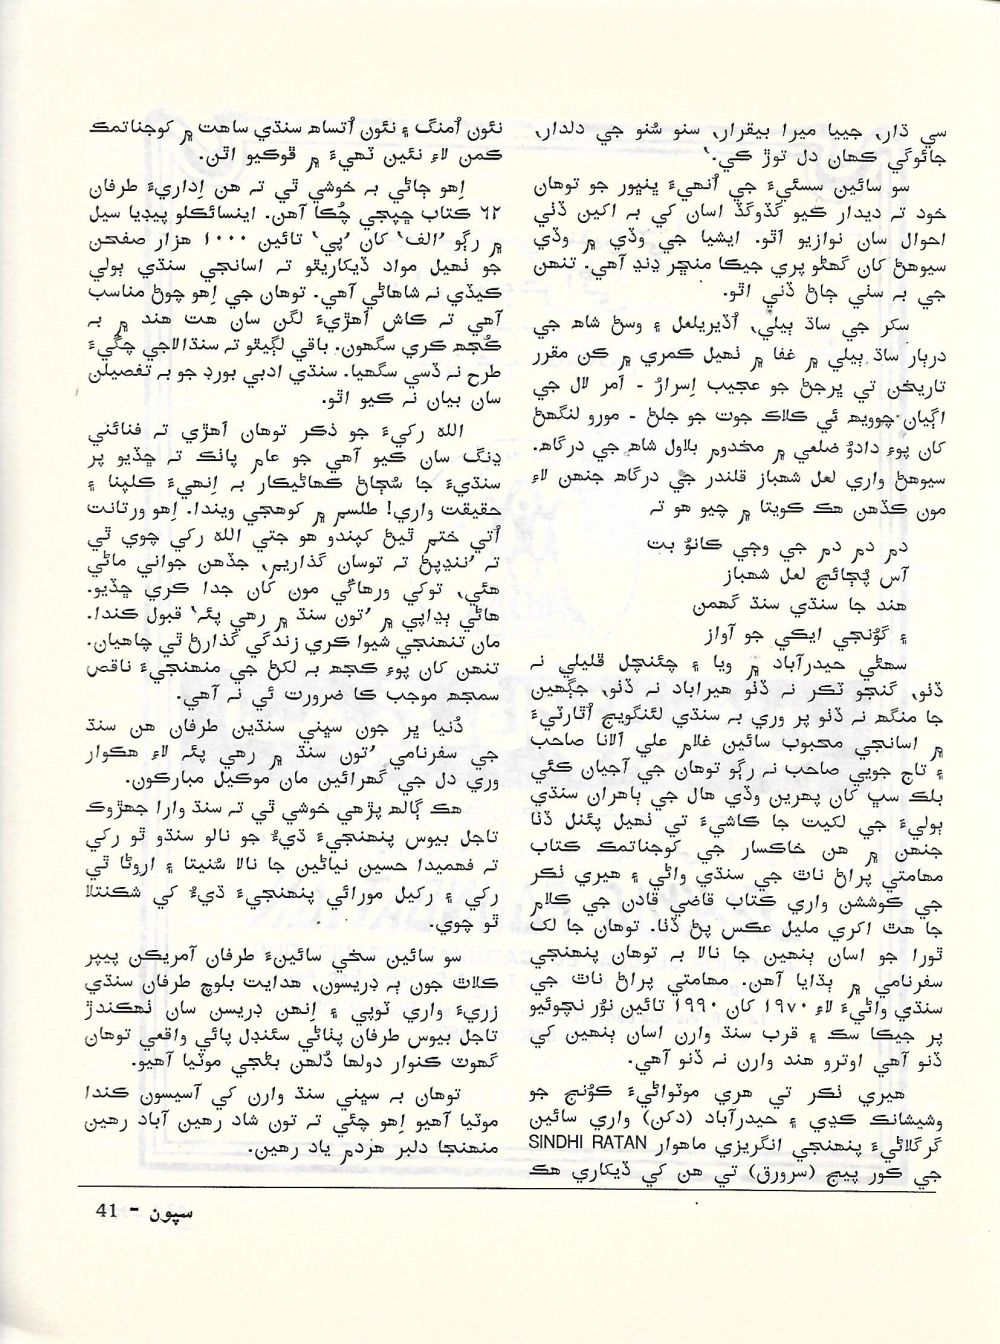 سي ڌار، جييا ميرا بيقرار، سنو سُنو جي دلدار،
جائوگي ڪهان دل توڙ ڪي.‘
سو سائين سسئيءَ جي اُنهيءَ ڀنڀور جو توهان
خود تہ ديدار ڪيو گڏوگڏ اسان کي بہ اکين ڏٺي
احوال سان نوازيو اٿو. ايشيا جي وڏي ۾ وڏي
سيوهڻ کان گهڻو پري جيڪا منڇر ڍنڍ آهي. تنهن
جي بہ سٺي ڄاڻ ڏني اٿو.
سکر جي ساڌ ٻيلي، اُڏيريلعل ۽ وسڻ شاهہ جي
دربار ساڌ ٻيلي ۾ غفا ۾ ٺهيل ڪمري ۾ ڪن مقرر
تاريخن تي ڀرجڻ جو عجيب اِسراز - امر لال جي
اڳيان چوويهہ ئي ڪلاڪ جوت جو جلڻ - مورو لنگهڻ
کان پوءِ دادوُ ضلعي ۾ مخدوم بلاول شاهہ جي درگاهہ.
سيوهڻ واري لعل شهباز قلندر جي درگاهہ جنهن لاءِ
مون ڪڏهن هڪ ڪويتا ۾ چيو هو تہ
دم دم دم جي وڃي ڪانوُ بت
آس پُڄائڄ لعل شهباز
هند جا سنڌي سنڌ گهمن
۽ گوُنجي ايڪي جو آواز
سهڻي حيدرآباد ۾ ويا ۽ چئنچل ڦليلي نہ
ڏٺو، گنجو ٽڪر نہ ڏٺو هيراباد نہ ڏٺو، جڳهين
جا منگهہ نہ ڏٺو پر وري بہ سنڌي لئنگويج اُٿارٽيءَ
۾ اسانجي محبوب سائين غلام علي الانا صاحب
۽ تاج جويي صاحب نہ رڳو توهان جي آجيان ڪئي
بلڪ سڀ کان پهرين وڏي هال جي ٻاهران سنڌي
ٻوليءَ جي لکيت جا ڪاشيءَ تي ٺهيل پئنل ڏٺا
جنهن ۾ هن خاڪسار جي کوجناتمڪ ڪتاب
مهامتي پراڻ ناٿ جي سنڌي واڻي ۽ هيري ٺڪر
جي ڪوششن واري ڪتاب قاضي قادن جي ڪلام
جا هٿ اکري مليل عڪس پڻ ڏٺا. توهان جا لک
ٿورا جو اسان ٻنهين جا نالا بہ توهان پنهنجي
سفرنامي ۾ ٻڌايا آهن. مهامتي پراڻ ناٿ جي
سنڌي واڻيءَ لاءِ ١٩٧٠ کان ١٩٩٠ تائين نوُر نچوئيو
پر جيڪا سڪ ۽ قرب سنڌ وارن اسان ٻنهين کي
ڏنو آهي اوترو هند وارن نہ ڏنو آهي.
هيري ٺڪر تي هري موٽواڻيءَ کوُنج جو
وشيشانڪ ڪڍي ۽ حيدرآباد (دکن) واري سائين
گرگلاڻيءَ پنهنجي انگريزي ماهوار SINDHI RATAN
جي ڪور پيج (سرورق) تي هن کي ڏيکاري هڪ
نئون اُمنگ ۽ نئون اُتساهہ سنڌي ساهت ۾ کوجناتمڪ
ڪمن لاءِ نئين ٽهيءَ ۾ ڦوڪيو اٿن.
اِهو ڄاڻي بہ خوشي ٿي تہ هن اِداريءَ طرفان
٦٢ ڪتاب ڇپجي چُڪا آهن. اينسائڪلو پيڊيا سيل
۾ رڳو ’الف‘ کان ’پي‘ تائين ١٠٠٠ هزار صفحن
جو ٺهيل مواد ڏيکاريٿو تہ اسانجي سنڌي ٻولي
ڪيڏي نہ شاهاڻي آهي. توهان جي اِهو چوڻ مناسب
آهي تہ ڪاش اهڙيءَ لگن سان هت هند ۾ بہ
ڪُجهہ ڪري سگهون. باقي لڳيٿو تہ سنڌالاجي چڱيءَ
طرح نہ ڏسي سگهيا. سنڌي ادبي بورڊ جو بہ تفصيلن
سان بيان نہ ڪيو اٿو.
الله رکيءَ جو ذڪر توهان اهڙي تہ فنائتي
ڍنگ سان ڪيو آهي جو عام پاٺڪ تہ ڇڏيو پر
سنڌيءَ جا سُڄاڻ ڪهاڻيڪار بہ اِنهيءَ ڪلپنا ۽
حقيقت واري! طلسم ۾ کوهجي ويندا. اِهو ورتانت
اُتي ختم ٿيڻ کپندو هو جتي الله رکي چوي ٿي
تہ ’ننڍپڻ تہ توسان گذاريم، جڏهن جواني ماڻي
هئي، توکي ورهاڱي مون کان جدا ڪري ڇڏيو.
هاڻي ٻڍاپي ۾ ’تون سنڌ ۾ رهي پئہ‘ قبول ڪندا.
مان تنهنجي شيوا ڪري زندگي گذارڻ ٿي چاهيان.
تنهن کان پوءِ ڪجهہ بہ لکڻ جي منهنجيءَ ناقص
سمجهہ موجب ڪا ضرورت ئي نہ آهي.
دُنيا ڀر جون سڀني سنڌين طرفان هن سنڌ
جي سفرنامي ’تون سنڌ ۾ رهي پئہ لاءِ هڪوار
وري دل جي گهرائين مان موڪيل مبارڪون.
هڪ ڳالهہ پڙهي خوشي ٿي تہ سنڌ وارا جهڙوڪ
تاجل بيوس پنهنجيءَ ڌيءُ جو نالو سنڌو ٿو رکي
تہ فهميدا حسين نياڻين جا نالا سُنيتا ۽ اروڻا ٿي
رکي ۽ رکيل مورائي پنهنجيءَ ڌيءُ کي شڪنتلا
ٿو چوي.
سو سائين سخي سائينءَ طرفان آمريڪن پيپر
ڪلاٿ جون ٻہ ڊريسون، هدايت بلوچ طرفان سنڌي
زريءَ واري ٽوپي ۽ اِنهن ڊريسن سان ٺهڪندڙ
تاجل بيوس طرفان پٺاڻي سئنڊل پائي واقعي توهان
گهوٽ ڪنوار دولها دُلهن بڻجي موٽيا آهيو.
توهان بہ سڀني سنڌ وارن کي آسيسون ڪندا
موٽيا آهيو اِهو چئي تہ تون شاد رهين آباد رهين
منهنجا دلبر هردم ياد رهين.
سپون - 41